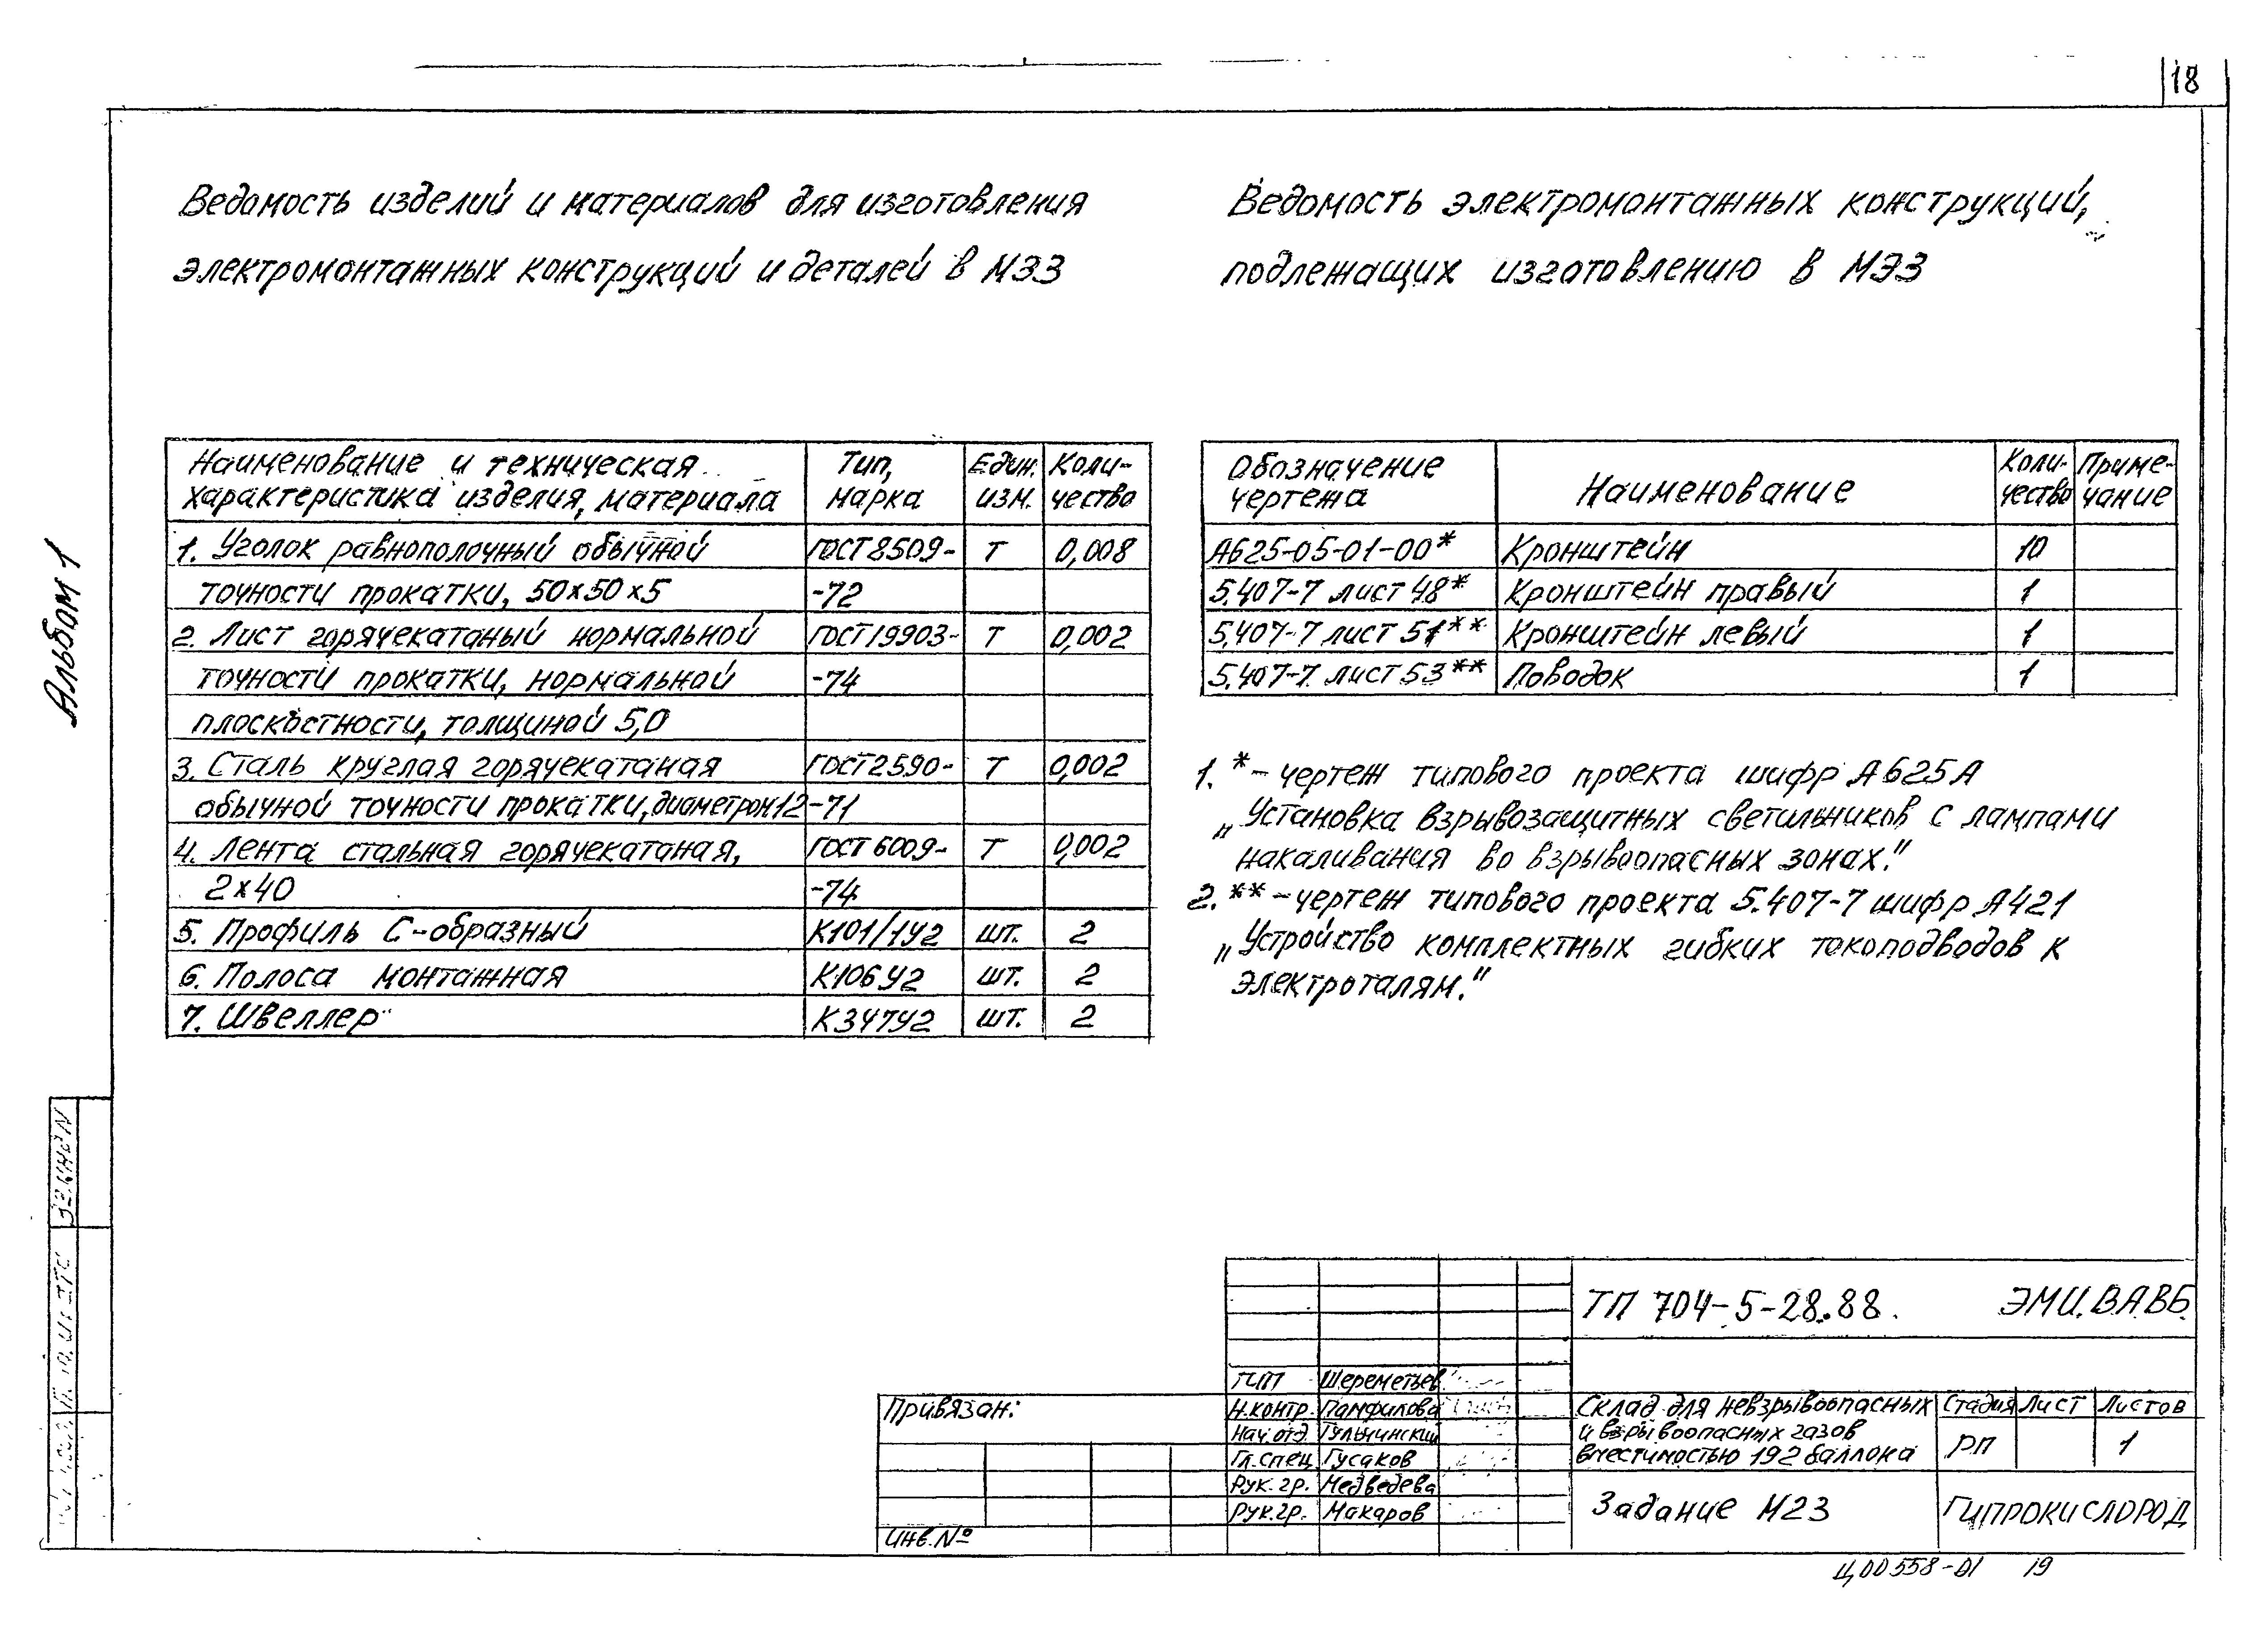 18
Альбом 1
Ведомость изделий и материалов для изготовления
электромонтажных конструкций и деталей в МЭЗ
Наименование и техническая характеристика изделия, материала | Тип, марка | Един. изм. | Коли-чество
1. Уголок равнополочный обычной | ГОСТ 8509- | Т | 0,008
точности прокатки, 50х50х5 | -72
2. Лист горячекатаный нормальной | ГОСТ 19903- | Т | 0,002
точности прокатки, нормальной | -74
плоскостности, толщиной 5,0
3. Сталь круглая горячекатаная | ГОСТ 2590- | Т | 0,002
обычной точности прокатки, диаметром 12 | -71
4. Лента стальная горячекатаная, | ГОСТ 6009- | Т | 0,002
2х40 | -74
5. Профиль С-образный | К101/1У2 | шт. | 2
6. Полоса монтажная | К106У2 | шт. | 2
7. Швеллер | К347У2 | шт. | 2
Ведомость электромонтажных конструкций,
подлежащих изготовлению в МЭЗ
Обозначение чертежа | Наименование | Коли-чество | Приме-чание
А625-05-01-00* | Кронштейн | 10
5.407-7 лист 48* | Кронштейн правый | 1
5.407-7 лист 51** | Кронштейн левый | 1
5.407-7 лист 53** | Поводок | 1
1. * - чертеж типового проекта шифр А625А
„Установка взрывозащитных светильников с лампами
накаливания во взрывоопасных зонах."
2. ** - чертеж типового проекта 5.407-7 шифр А421
„Устройство комплектных гибких токоподводов к
электроталям."
ТП 704-5-28.88. ЭМИ.ВА.ВБ
ГИП Шереметьев
Н.контр. Памфилова
Нач.отд. Гульчинский
Гл.спец Гусаков
Рук.гр. Медведева
Рук.гр. Макаров
Привязан:
Инв.№
Склад для невзрывоопасных
и взрывоопасных газов
вместимостью 192 баллона
Стадия Лист Листов
РП 1
Задание МЭЗ
ГИПРОКИСЛОРОД
Ц00558-01 19